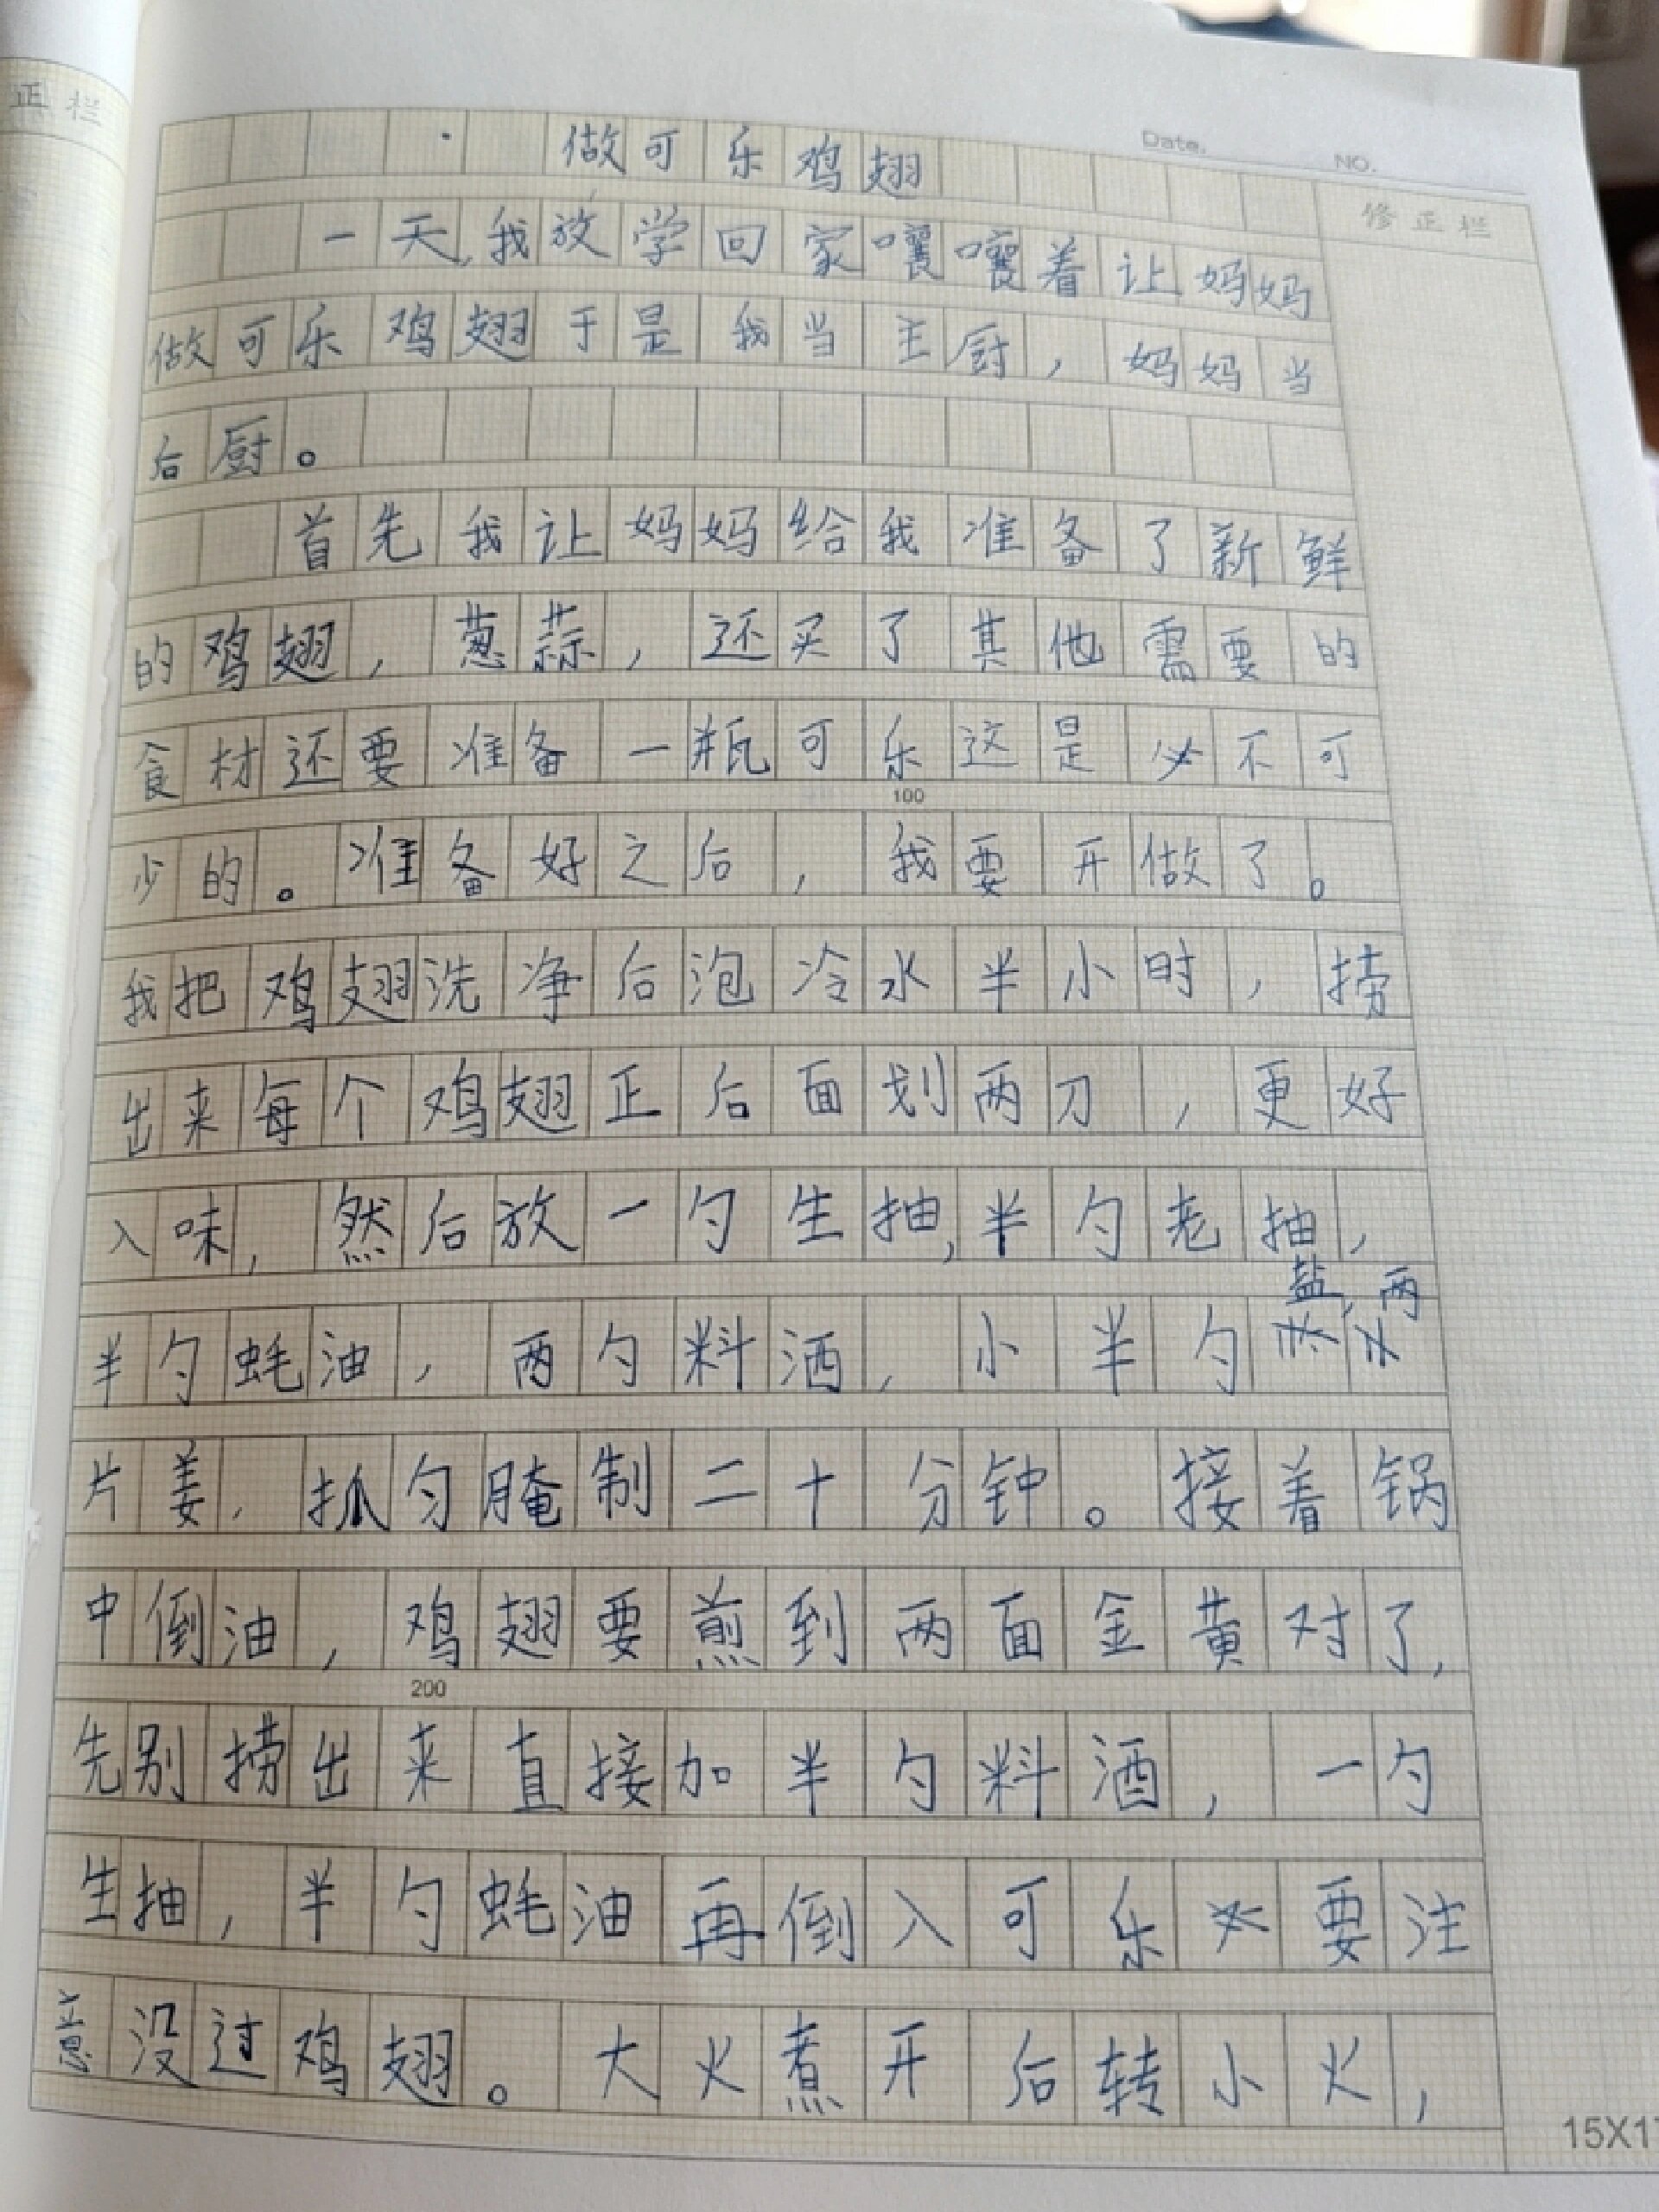 正栏
Date. NO.
修正栏
做可乐鸡翅
一天,我放学回家嚷嚷着让妈妈
做可乐鸡翅于是我当主厨，妈妈当
后厨。
首先我让妈妈给我准备了新鲜
的鸡翅，葱蒜，还买了其他需要的
食材还要准备一瓶可乐这是必不可
100
少的。准备好之后，我要开做了。
我把鸡翅洗净后泡冷水半小时，捞
出来每个鸡翅正后面划两刀，更好
入味，然后放一勺生抽,半勺老抽，
盐,两
半勺蚝油，两勺料酒，小半勺
片姜，抓匀腌制二十分钟。接着锅
中倒油，鸡翅要煎到两面金黄对了，
200
先别捞出来直接加半勺料酒，一勺
生抽，半勺蚝油再倒入可乐要注
意没过鸡翅。大火煮开后转小火，
15X1